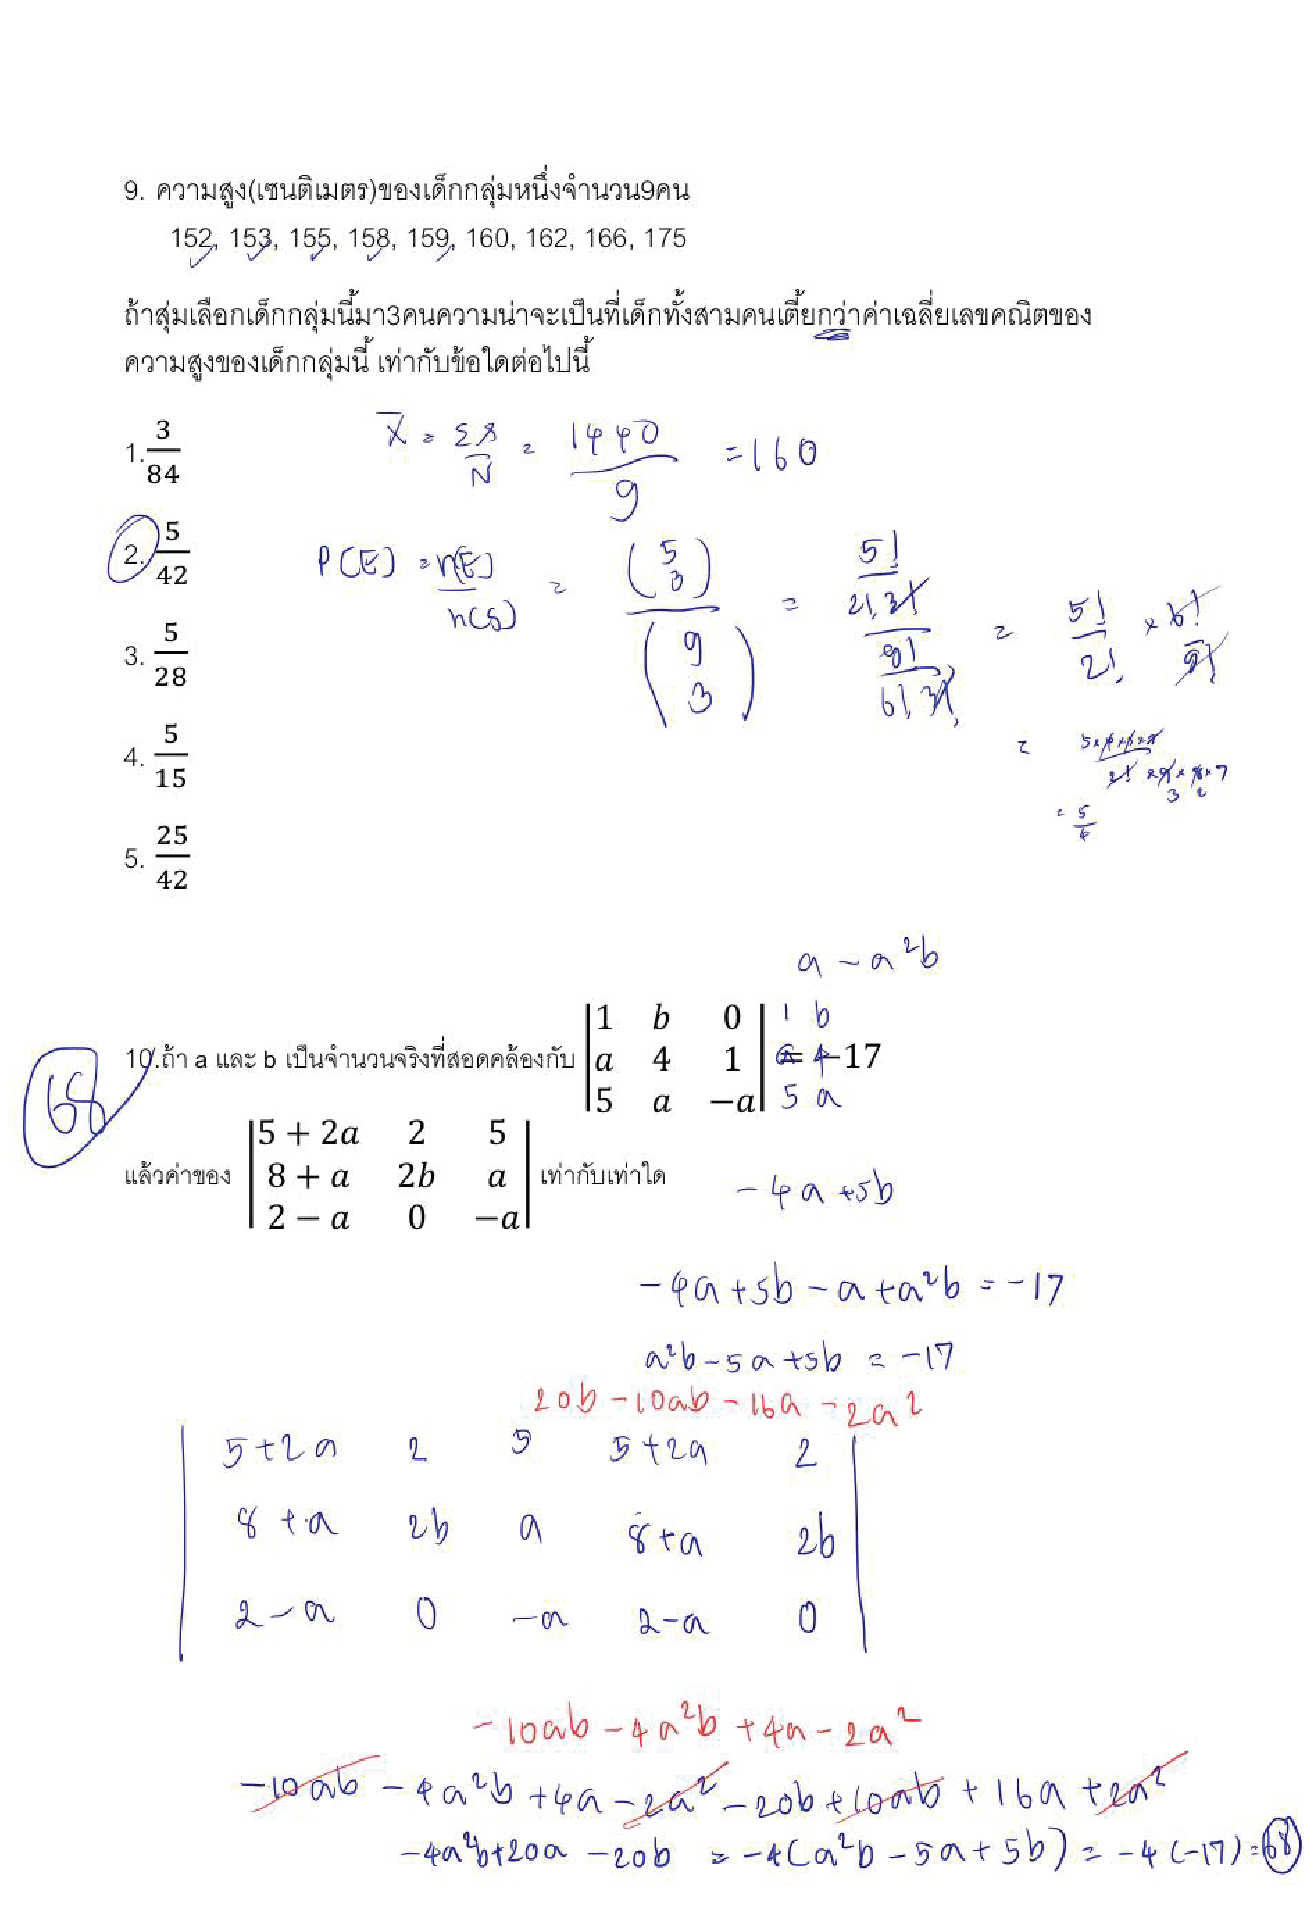 9. ความสูง(เซนติเมตร)ของเด็กกลุ่มหนึ่งจำนวน9คน
152, 153, 155, 158, 159, 160, 162, 166, 175
ถ้าสุ่มเลือกเด็กกลุ่มนี้มา3คนความน่าจะเป็นที่เด็กทั้งสามคนเตี้ยกว่าค่าเฉลี่ยเลขคณิตของ
ความสูงของเด็กกลุ่มนี้ เท่ากับข้อใดต่อไปนี้
1. 3/84
x̄ = Σx/N = 1440/9 = 160
2. 5/42
P(E) = n(E)/n(S) = (5 3)/(9 3) = 5!/2!3! / 9!/6!3! = 5!/2! × 6!/9!
3. 5/28
4. 5/15
5. 25/42
a - a²b
10.ถ้า a และ b เป็นจำนวนจริงที่สอดคล้องกับ |1 b 0| 1 b
|a 4 1| a 4 = -17
|5 a -a| 5 a
68
แล้วค่าของ |5 + 2a 2 5|
|8 + a 2b a| เท่ากับเท่าใด
|2 - a 0 -a|
-4a +5b
-4a+5b-a+a²b = -17
a²b-5a+5b = -17
20b -10ab -16a -2a²
5+2a 2 5 5+2a 2
8+a 2b a 8+a 2b
2-a 0 -a 2-a 0
-10ab -4a²b +4a -2a²
-10ab -4a²b +4a -2a² -20b +10ab +16a +2a²
-4a²b+20a -20b = -4(a²b -5a+5b) = -4(-17) = 68